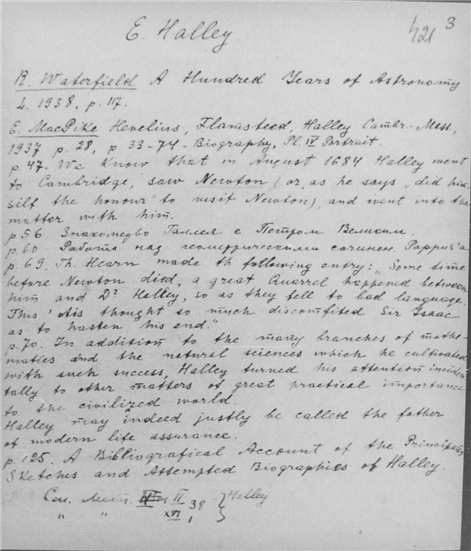 E. Halley
421 3
R. Waterfield A Hundred Years of Astronomy
L. 1938, p. 117.
E. MacPike Hevelius, Flamsteed, Halley Cambr.-Mass.,
1937 p. 28, p 33-74 - Biography, Pl. IV Portrait.
p. 47. We know that in August 1684 Halley went
to Cambridge, saw Newton (or, as he says „did him
silf the honour" to visit Newton), and went into the
matter with him.
p 56 Знакомство Галлея с Петром Великим.
p. 60 Работа над геометрическими сочинен. Pappus'a
p. 69. Th. Hearn made th following entry: „Some time
before Newton died, a great Quarrel happened between
him and Dr Halley, so as they fell to bad language.
This 'tis thought so much discomfited Sir Isaac
as to hasten his end."
p. 70. In addition to the many branches of mathe-
matics and the natural sciences which he cultivated
with such success, Halley turned his attention inciden
tally to other matters of great practical importance
to the civilized world.
Halley may indeed justly be called the father
of modern life assurance.
p. 125. A Bibliografical Account of the Principal
Sketches and Attempted Biographies of Halley.
II 38 Halley
" " XVI